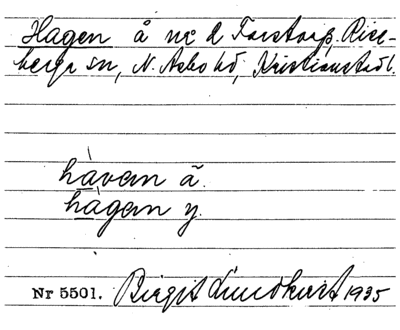 Hagen å nr 2 Forstorp, Risebe-
berga sn, N. Åsbo hd, Kristianstads l.
hàvɐn ã.
hàgɐn y.
Nr 5501. Birgit Lindkvist 1935